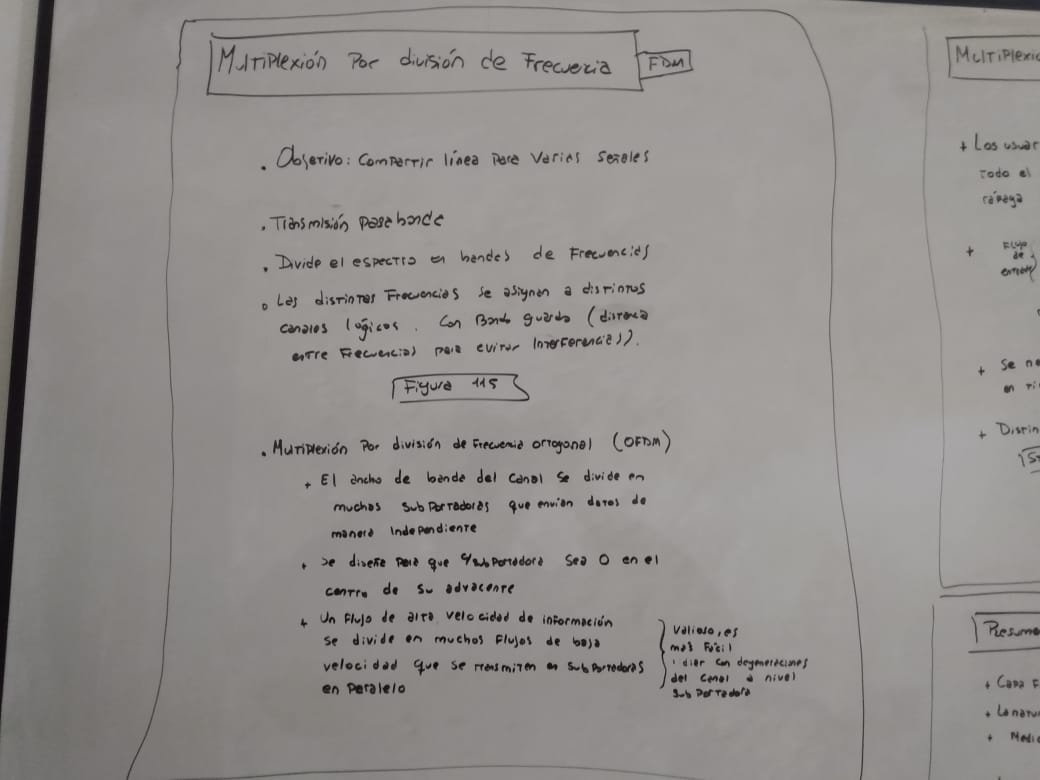 Multiplexión Por división de Frecuencia
FDM
. Objetivo: Compartir línea para varias señales
. Transmisión pasabanda
. Divide el espectro en bandas de Frecuencias
. Las distintas Frecuencias se asignan a distintos
canales lógicos. Con Banda guarda (distancia
entre Frecuencias para evitar Interferencias).
Figura 115
. Multiplexión Por división de Frecuencia ortogonal (OFDM)
+ El ancho de banda del canal se divide en
muchas subportadoras que envían datos de
manera independiente
+ Se diseña para que c/subportadora sea 0 en el
centro de su adyacente
+ Un Flujo de alta velocidad de información
se divide en muchos Flujos de baja
velocidad que se transmiten en subportadoras
en paralelo
Valioso, es
mas Fácil
lidiar con degeneraciones
del canal a nivel
subportadora
Multiplexió
+ Los usuar
todo el
ráfaga
+ Flujo
de
entrada
+ Se ne
en ti
+ Distin
Resume
+ Capa F
+ La natu
+ Medio